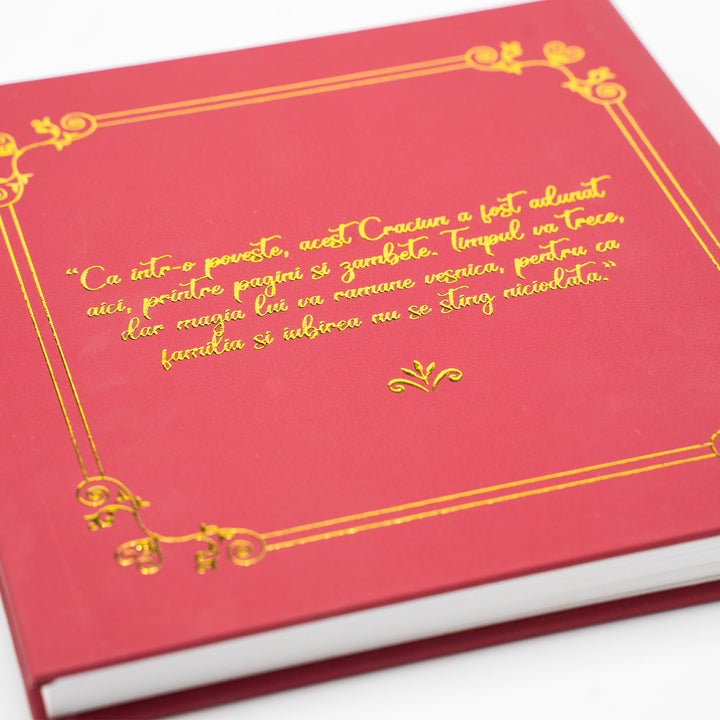 “Ca intr-o poveste, acest Craciun a fost adunat
aici, printre pagini si zambete. Timpul va trece,
dar magia lui va ramane vesnica, pentru ca
familia si iubirea nu se sting niciodata.“